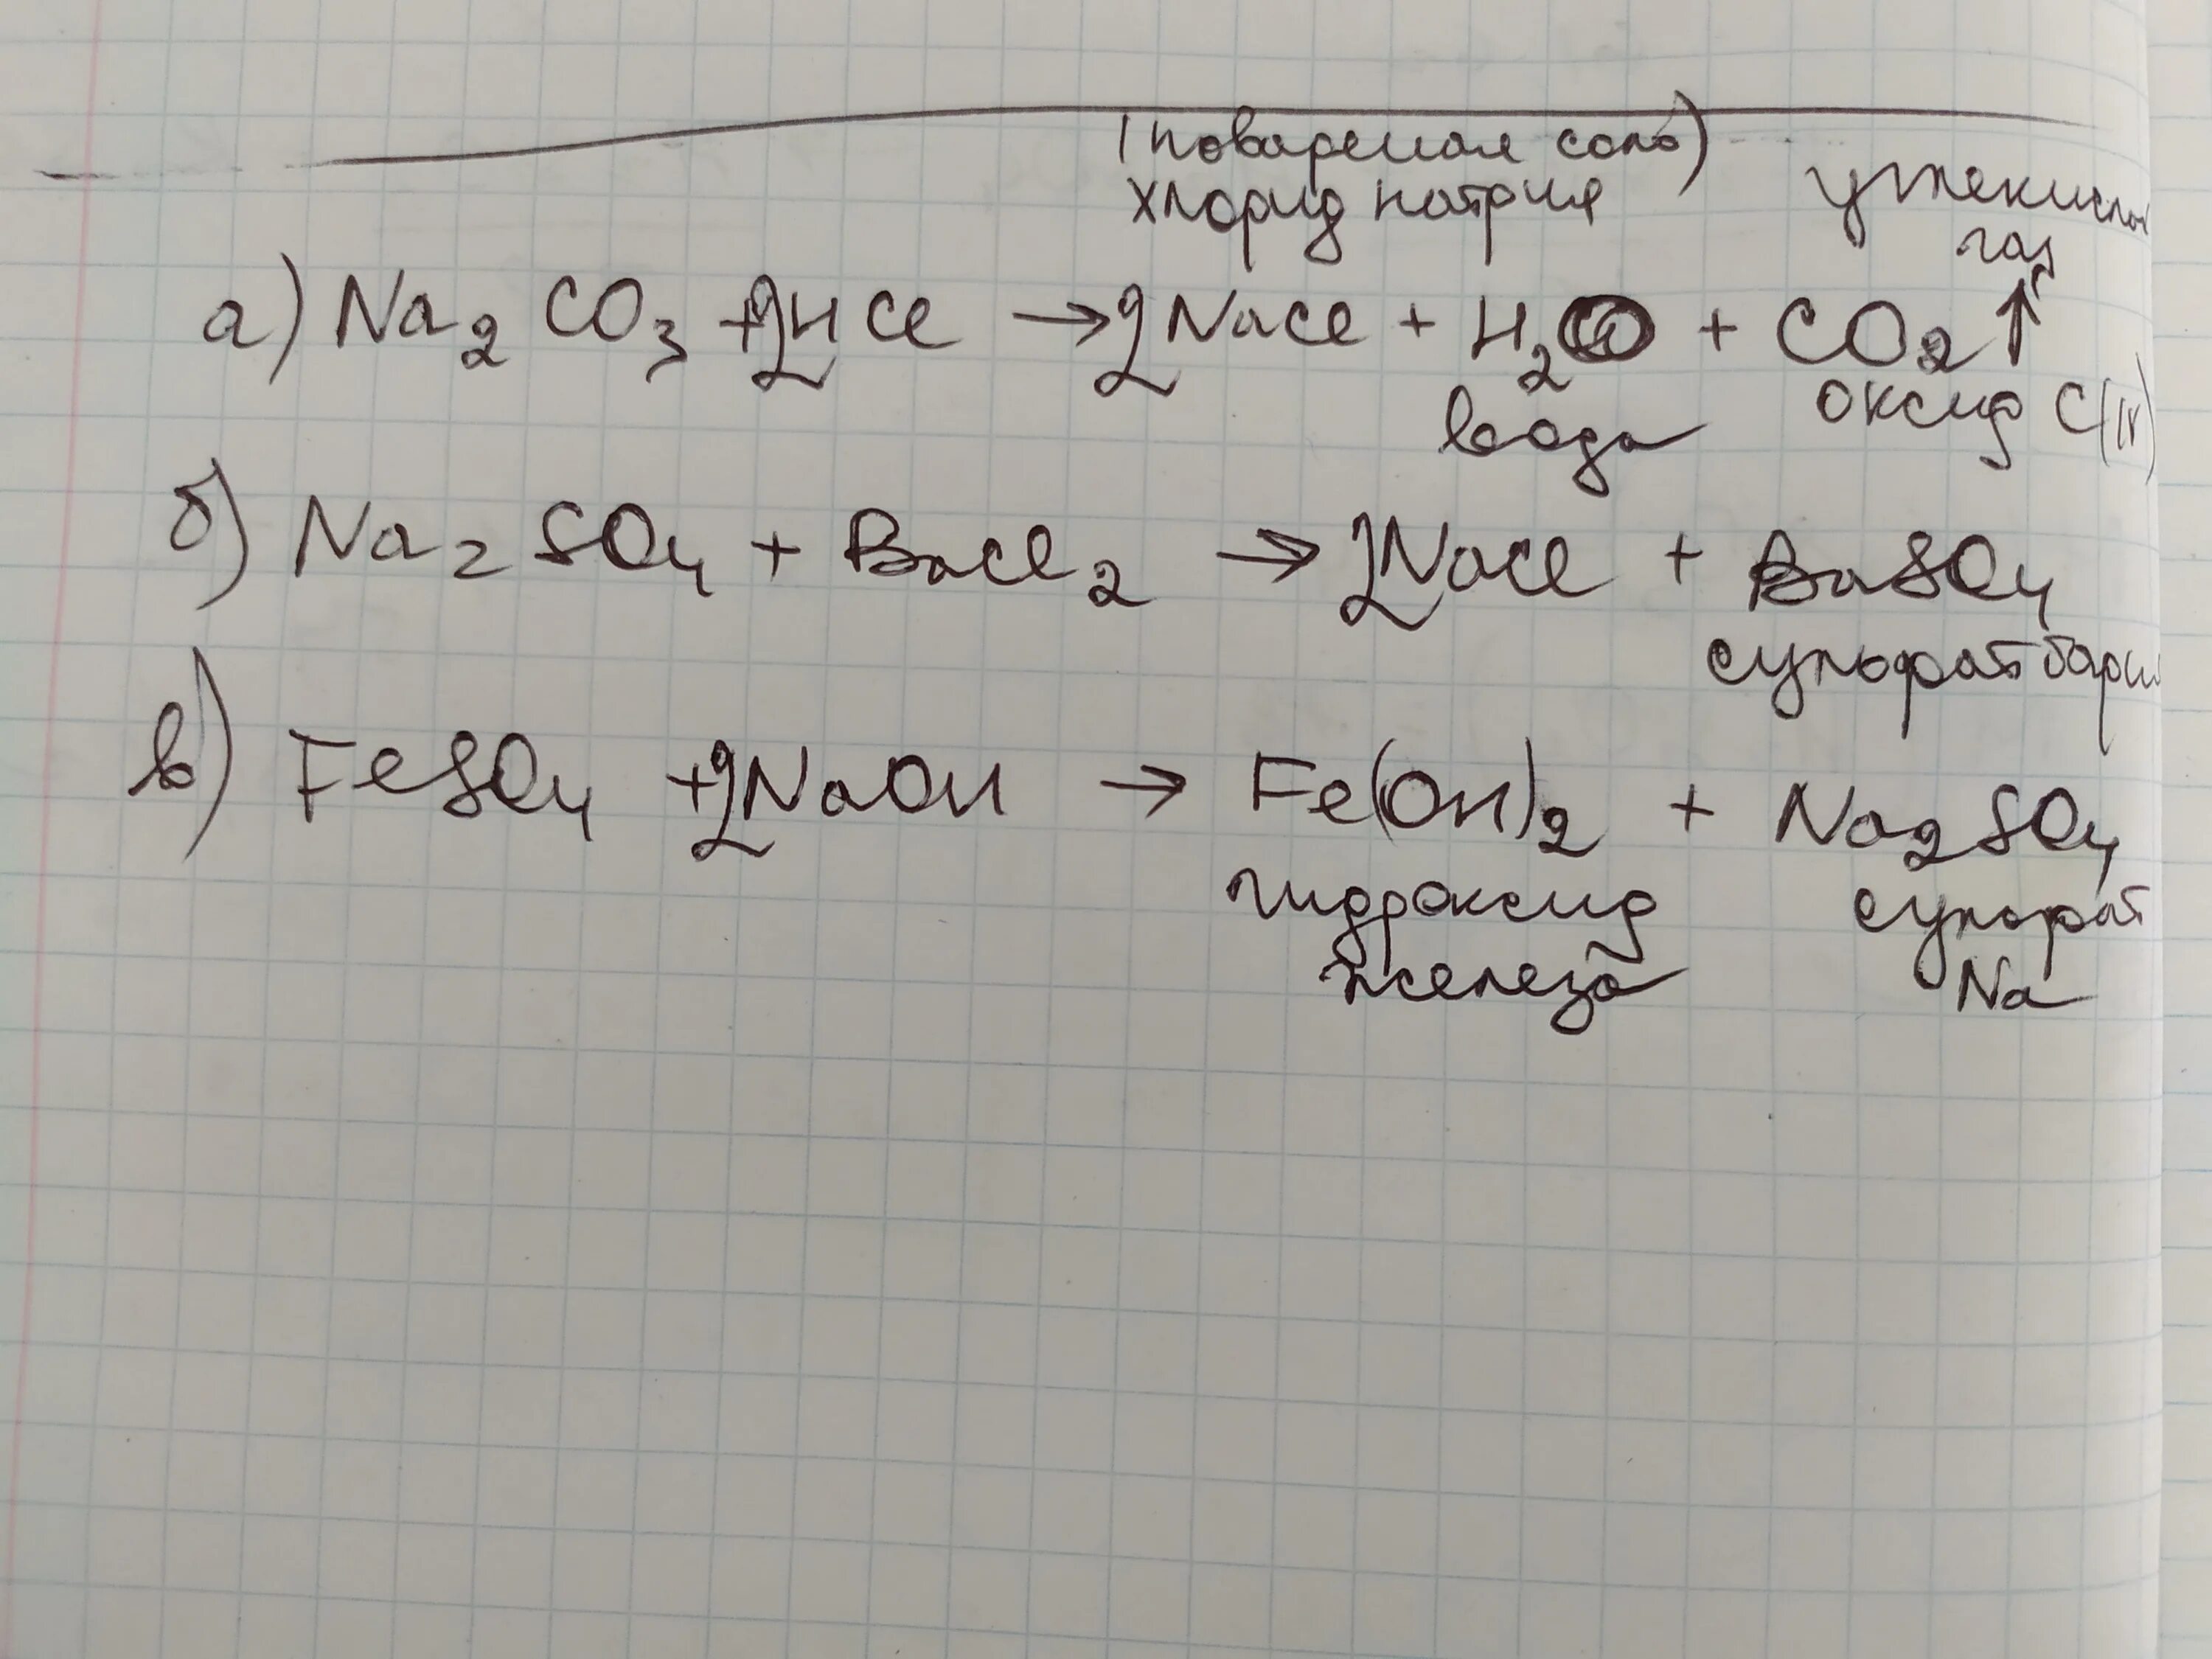 (поваренная соль)
хлорид натрия углекислый
газ
а) Na₂CO₃ + 2HCl → 2NaCl + H₂O + CO₂↑
вода оксид C(IV)
б) Na₂SO₄ + BaCl₂ → 2NaCl + BaSO₄
сульфат бария
в) FeSO₄ + 2NaOH → Fe(OH)₂ + Na₂SO₄
гидроксид сульфат
железа Na